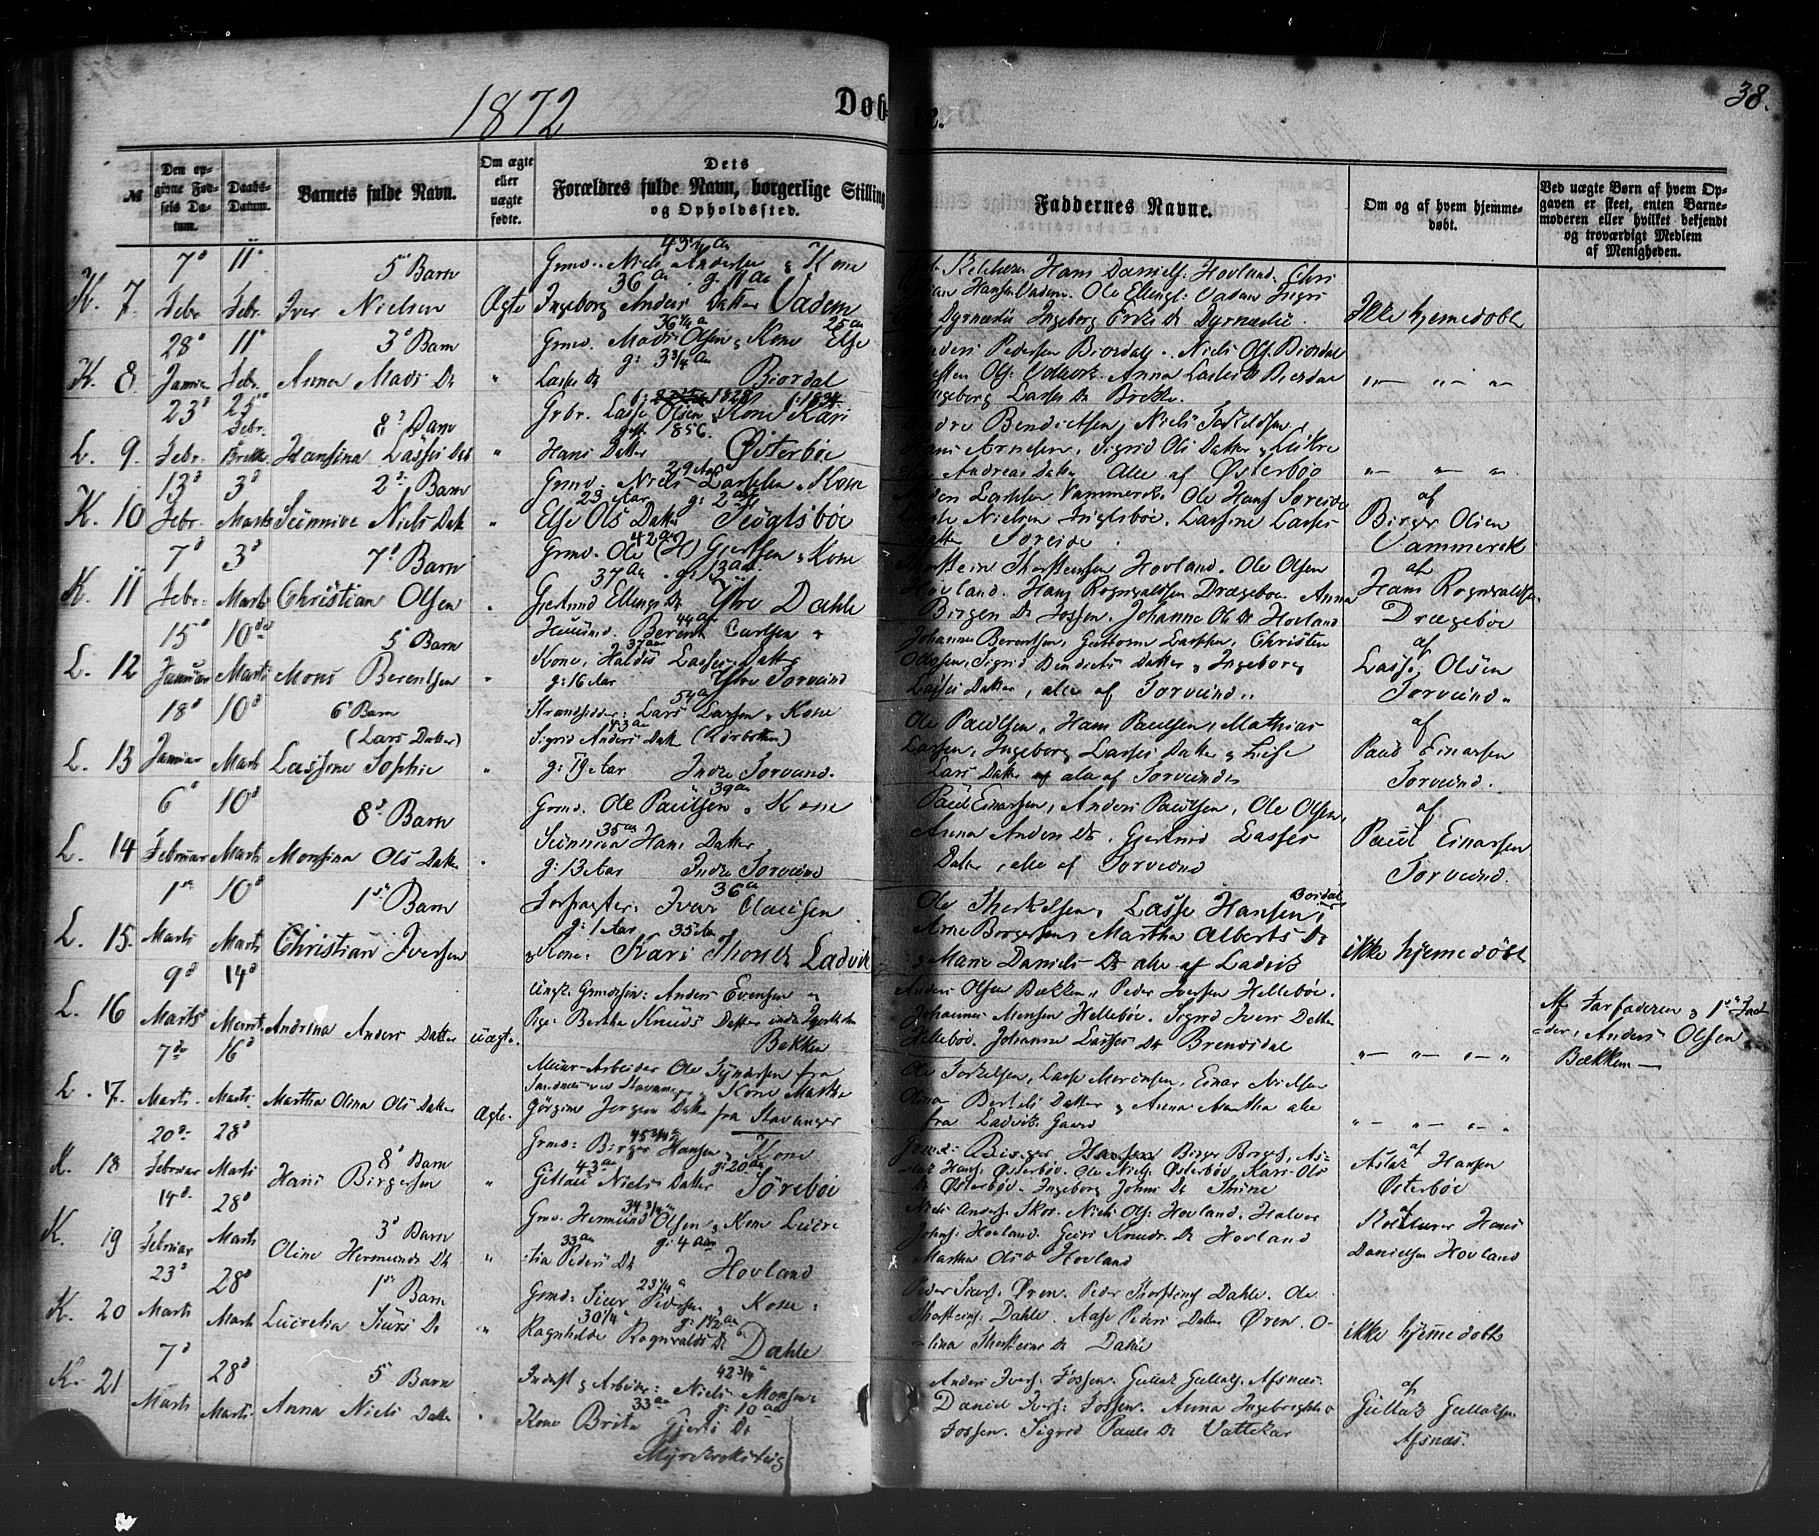 1872
Døb
te.
38.
№
Den opgivne Fødsels Datum.
Daabs-Datum.
Barnets fulde Navn.
Om ægte eller uægte fødte.
Dets Forældres fulde Navn, borgerlige Stilling og Opholdssted.
Faddernes Navne.
Om og af hvem hjemmedøbt.
Ved uægte Børn af hvem Opgaven er skeet, enten Barnemoderen eller hvilket bekjendt og troværdigt Medlem af Menigheden.
K. 7. 7d Febr. 11te Febr. 5d Barn
Iver Nielsen Ægte
Grmd. Niels Andersen & Kone
36 Aar. g. 11 aar
Ingeborg Anders Datter Vadem
Kirkesn. Hans Daniels. Hovland. Chri
Hansen Vadem. Ole Ellings: Vadem Ingri
Dyrnæslie Ingeborg Eriks Dr Dyrnæslie.
Ikke hjemedøbt
K. 8 28d Januar 11te Febr. 3d Barn
Anna Mads Dr "
Grmd. Mads Olsen & Kone Else
36 1/4 a 25 aa
g: 3 3/4 Aar
Lasses Dr Biordal
Pedersen Biordal. Niels Ols. Biordal
Ols. Anna Lasses Dr Biordal
Ingeborg Lasses Dr Brekke.
"— "— "—
L. 9. 23d Febr. 25de Febr. Brekke 8d Barn
Hansina Lasses Dat "
Grbr. Lasse Olsen & Kone Kari
1828 f: 1834
gift 1856.
Hans Datter Østerbøe
Bendictsen, Niels Torkeldsen,
Arnesen, Sigrid Ols Datter & Lukre
Andreas Datter Alle af Østerbøe
"— "— "—
K. 10 13d Febr. 3d Marts 2d Barn
Sünnive Niels Datt "
Grmd. Niels Lassesen & Kone
29 Aar
23 Aar g: 2 aar
Else Ols Datter
Lassesen Vammersk. Ole Hans Soreide
Nielsen Lassine Lasses
Datter Soreide.
af
Birger Olsen
Vammersk
K. 11 7d Febr. 3d Marts 7d Barn
Christian Olsen "
Grmd. Ole (H) Gjertsen & Kone
42 aar
37 aa. g: 13 aar
Gjertrud Ellings Dr Ytre Dahle
Thorstein Thorsteinsen Hovland. Ole Olsen
Hovland. Hans Rognvaldsen Drægebøe Anna
Birgers Dr Fossen. Johanne Ols Dr Hovland
af
Hans Rognvaldsen
Drægebøe
L. 12 15d Januar 10de Marts 5d Barn
Mons Berentsen "
Husmd. Berent Carlsen &
44 Aar
37 aa
Kone, Haldis Lasses Datter
g: 16 Aar Ytre Torvund
Johannes Berentsen, Guttorm Lassesen, Christen
Olsen, Sigrid Bendicts Datter & Ingeborg
Lasses Datter, alle af Torvund.
af
Lasse Olsen
Torvund.
L. 13 18d Januar 10d Marts 6d Barn
(Lars Datter)
Lassine Sophie "
Strandsidder: Lars Larsen & Kone
54 a
43 aa
Sigrid Anders Datt
g: 19 Aar Indre Torvund.
Ole Paulsen, Hans Paulsen, Mathias
Larsen, Ingeborg Lasses Datter & Lise
Lars Datter alle af Torvund
af
Paul Einarsen
Torvund.
L. 14 6d Februar 10d Marts 8d Barn
Monsina Ols Datter "
Grmd. Ole Paulsen & Kone
39 aa
35 aa
Sünniva Hans Datter
g: 13 Aar Indre Torvund
Paul Einarsen, Anders Paulsen, Ole Olsen,
Anna Anders Dr, Gjertrud Lasses
Datter, alle af Torvund
af
Paul Einarsen
Torvund.
L. 15. 1ste Marts 10d Marts 1ste Barn
Christian Iversen
Forpagter: Iver Clausen
36 a
g: 1 Aar 35 Aa
& Kone: Kari Thors Dr Ladvik
Ole Therkelsen, Lasse Hansen, Bordal
Arne Borgersen, Martha Alberts Dr
& Marie Daniels Dr alle af Ladvik
ikke hjemedøbt
L. 16 9d Marts 14d Marts
Andrina Anders Datter uægte.
Ungk. Grmdssøn: Anders Evensen &
Pige Berthe Knuds Datter
Bekken
Anders Olsen Bækken, Peder Iversen Hellebøe.
Johannes Monsen Hellebøe. Sigrid Ivers Datter
Hellebøe. Johanne Lasses Dr Brendsdal
"— "— "— "
Af Farfaderen & 1ste Fad
der, Anders Olsen
Bækken —
L. 17. 7de Marts. 16d Marts.
Martha Olina Ols Datter Ægte.
Muur-Arbeider Ole Gunarsen fra
Sandnes ved Stavanger & Kone Marthe
Gürgine Jørgens Datter fra Stavanger
Ole Torkelsen, Lasse Morensen, Einar Nielsen
Olina Bertels Datter & Anna Martha alle
fra Ladvik Gaard
"— "— "— "
K. 18 20de Februar 28d Marts 8d Barn
Hans Birgersen "
Grmd: Birger Hansen & Kone
45 3/4 a
43 aa g: 20 aa
Niels Datter Sørebøe
Grmd: Birger Hansen Birger Borges, As-
lak Hans. Østerbøe. Ole Niels. Østerbøe, Kari Ols
Dr Østerbøe. Ingeborg Johns Dr
af
Aslak Hansen
Østerbøe
K. 19 14d Februar 28d Marts 3d Barn
Oline Hermunds Dt "
Gmd. Hermund Olsen & Kone Lucre
34 3/4 a
33 aa g: 4 aar
tia Peders Dt Hovland
Niels Anders. Skor. Niels Ols: Hovland. Halvor
Johns: Hovland. Guri Knuds Dr Hovland
Martha Ols Dr Hovland
af
Hans
Danielsen Hovland
K. 20 23d Marts 28d Marts 1ste Barn
Lucretia Siurs Dr "
Grmd: Siur Pedersen & Kone:
23 1/4 a
30 1/4 a g: 1 1/2 aa
Ragnhilde Rognvalds Dr Dahle
Peder Siurs. Øren. Peder Thorsteins Dahle. Ole
Thorsteins. Dahle. Aase Peders Datter Øren. O-
lina Thorsteins Dr Dahle
ikke hjemedøbt
K. 21 7d Marts 28d Marts. 5d Barn
Anna Niels Datter "
Inderst & Arbeider: Niels Monsen &
42 3/4 a
33 aa g: 10 aa
Kone Brita Gjerts Dr
Anders Ivers. Fossen. Gullak Gullaks. Afsnæs.
Daniel Ivers: Fossen. Anna Ingebrigts Dr
Fossen. Sigrid Pauls Dr Vattekar
af
Gullak Gullaksen
Afsnæs.